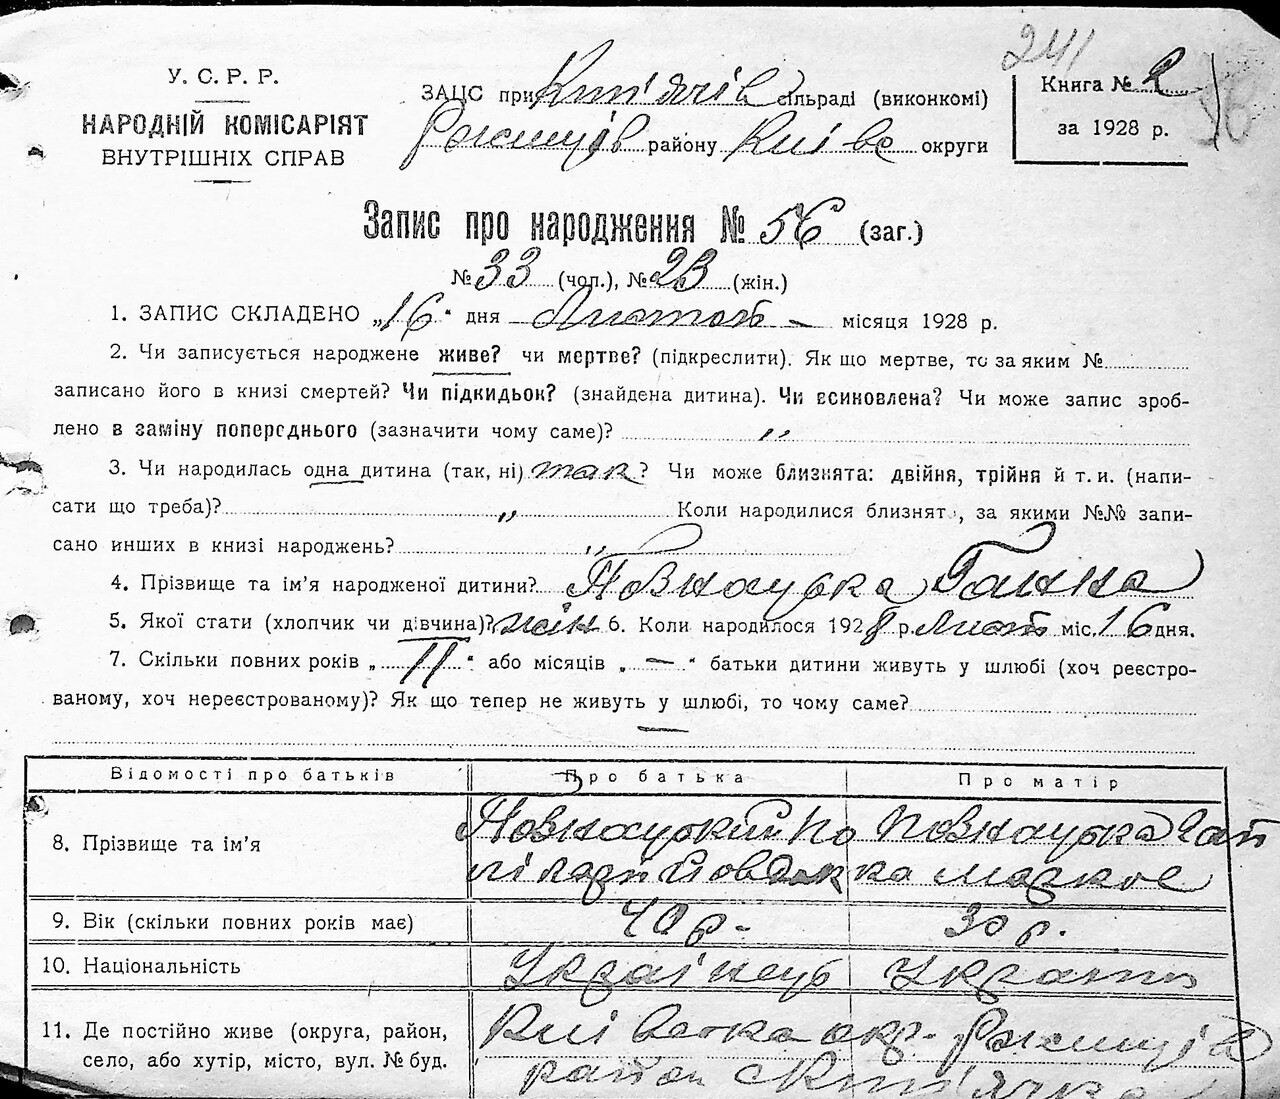 241
У. С. Р. Р.
НАРОДНІЙ КОМІСАРІЯТ
ВНУТРІШНІХ СПРАВ
ЗАЦС при Кип'ячів сільраді (виконкомі)
Ржищів району Київс округи
Книга № 2
за 1928 р.
56
Запис про народження № 56 (заг.)
№ 33 (чол.), № 23 (жін.)
1. ЗАПИС СКЛАДЕНО „16“ дня Лютого місяця 1928 р.
2. Чи записується народжене живе? чи мертве? (підкреслити). Як що мертве, то за яким №
записано його в книзі смертей? Чи підкидьок? (знайдена дитина). Чи всиновлена? Чи може запис зроб-
лено в заміну попереднього (зазначити чому саме)? „
3. Чи народилась одна дитина (так, ні) так? Чи може близнята: двійня, трійня й т. и. (напи-
сати що треба)? „ Коли народилися близнят, за якими №№ запи-
сано инших в книзі народжень? „
4. Прізвище та ім'я народженої дитини? Повноцька Ганна
5. Якої стати (хлопчик чи дівчина)? жін 6. Коли народилося 1928 р. Лют міс. 16 дня.
7. Скільки повних років „11“ або місяців „—“ батьки дитини живуть у шлюбі (хоч реєстро-
ваному, хоч нереєстрованому)? Як що тепер не живуть у шлюбі, то чому саме?
—
Відомості про батьків Про батька Про матір
8. Прізвище та ім'я
9. Вік (скільки повних років має) 40 р. 30 р.
10. Національність Українець Українк
11. Де постійно живе (округа, район, Київська окр. Ржищів
село, або хутір, місто, вул. № буд. район с Кип'ячка